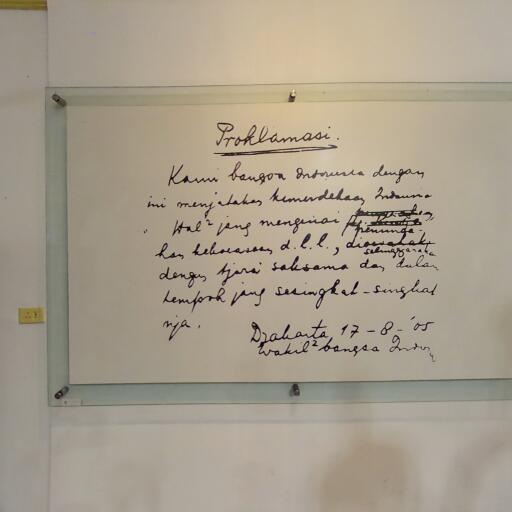 Proklamasi.
Kami bangsa Indonesia dengan
ini menjatakan kemerdekaan Indonesia
Hal² jang mengenai
kan kekoeasaan d.l.l.,
selenggarakan
dengan tjara saksama dan dalam
tempoh jang sesingkat-singkat
nja.
Djakarta 17-8-'05
Wakil² bangsa Indon